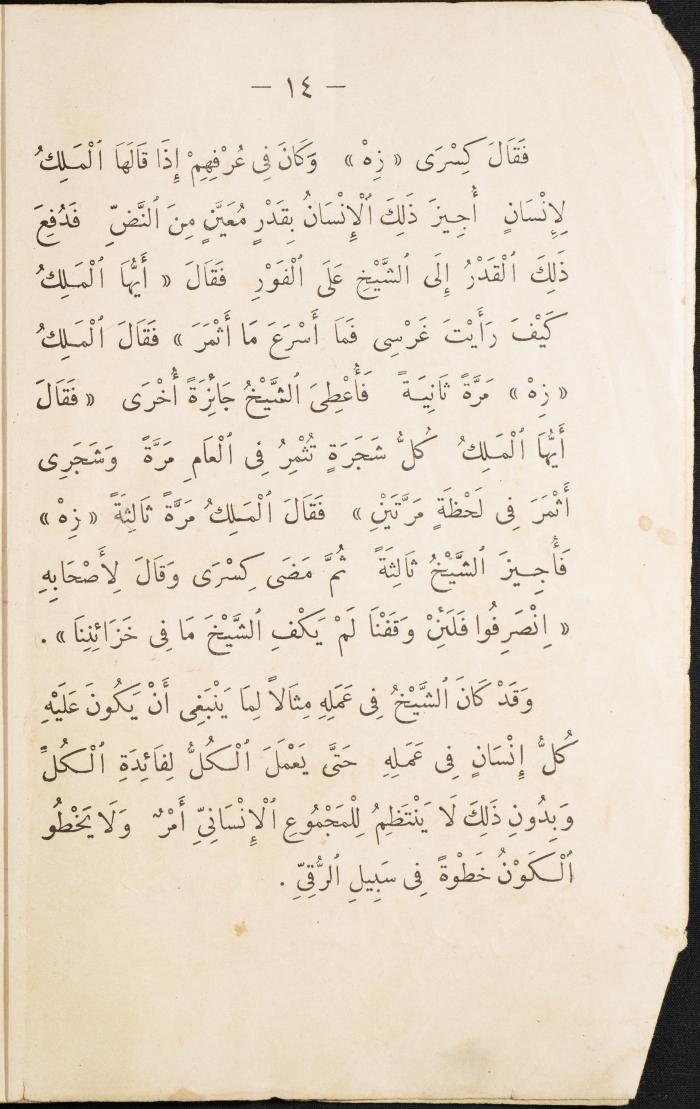 — ١٤ —
فَقَالَ كِسْرَى « زِهْ » وَكَانَ فِى عُرْفِهِمْ إِذَا قَالَهَا ٱلْمَلِكُ
لِإِنْسَانٍ أُجِيزَ ذَلِكَ ٱلْإِنْسَانُ بِقَدْرٍ مُعَيَّنٍ مِنَ ٱلنَّضِّ فَدُفِعَ
ذَلِكَ ٱلْقَدْرُ إِلَى ٱلشَّيْخِ عَلَى ٱلْفَوْرِ فَقَالَ « أَيُّهَا ٱلْمَلِكُ
كَيْفَ رَأَيْتَ غَرْسِى فَمَا أَسْرَعَ مَا أَثْمَرَ » فَقَالَ ٱلْمَلِكُ
« زِهْ » مَرَّةً ثَانِيَةً فَأُعْطِىَ ٱلشَّيْخُ جَائِزَةً أُخْرَى « فَقَالَ
أَيُّهَا ٱلْمَلِكُ كُلُّ شَجَرَةٍ تُثْمِرُ فِى ٱلْعَامِ مَرَّةً وَشَجَرِى
أَثْمَرَ فِى لَحْظَةٍ مَرَّتَيْنِ » فَقَالَ ٱلْمَلِكُ مَرَّةً ثَالِثَةً « زِهْ »
فَأُجِيزَ ٱلشَّيْخُ ثَالِثَةً ثُمَّ مَضَى كِسْرَى وَقَالَ لِأَصْحَابِهِ
« اِنْصَرِفُوا فَلَئِنْ وَقَفْنَا لَمْ يَكْفِ ٱلشَّيْخَ مَا فِى خَزَائِنِنَا » .
وَقَدْ كَانَ ٱلشَّيْخُ فِى عَمَلِهِ مِثَالاً لِمَا يَنْبَغِى أَنْ يَكُونَ عَلَيْهِ
كُلُّ إِنْسَانٍ فِى عَمَلِهِ حَتَّى يَعْمَلَ ٱلْكُلُّ لِفَائِدَةِ ٱلْكُلِّ
وَبِدُونِ ذَلِكَ لَا يَنْتَظِمُ لِلْمَجْمُوعِ ٱلْإِنْسَانِىِّ أَمْرٌ وَلَا يَخْطُو
ٱلْكَوْنُ خَطْوَةً فِى سَبِيلِ ٱلرُّقِىِّ .